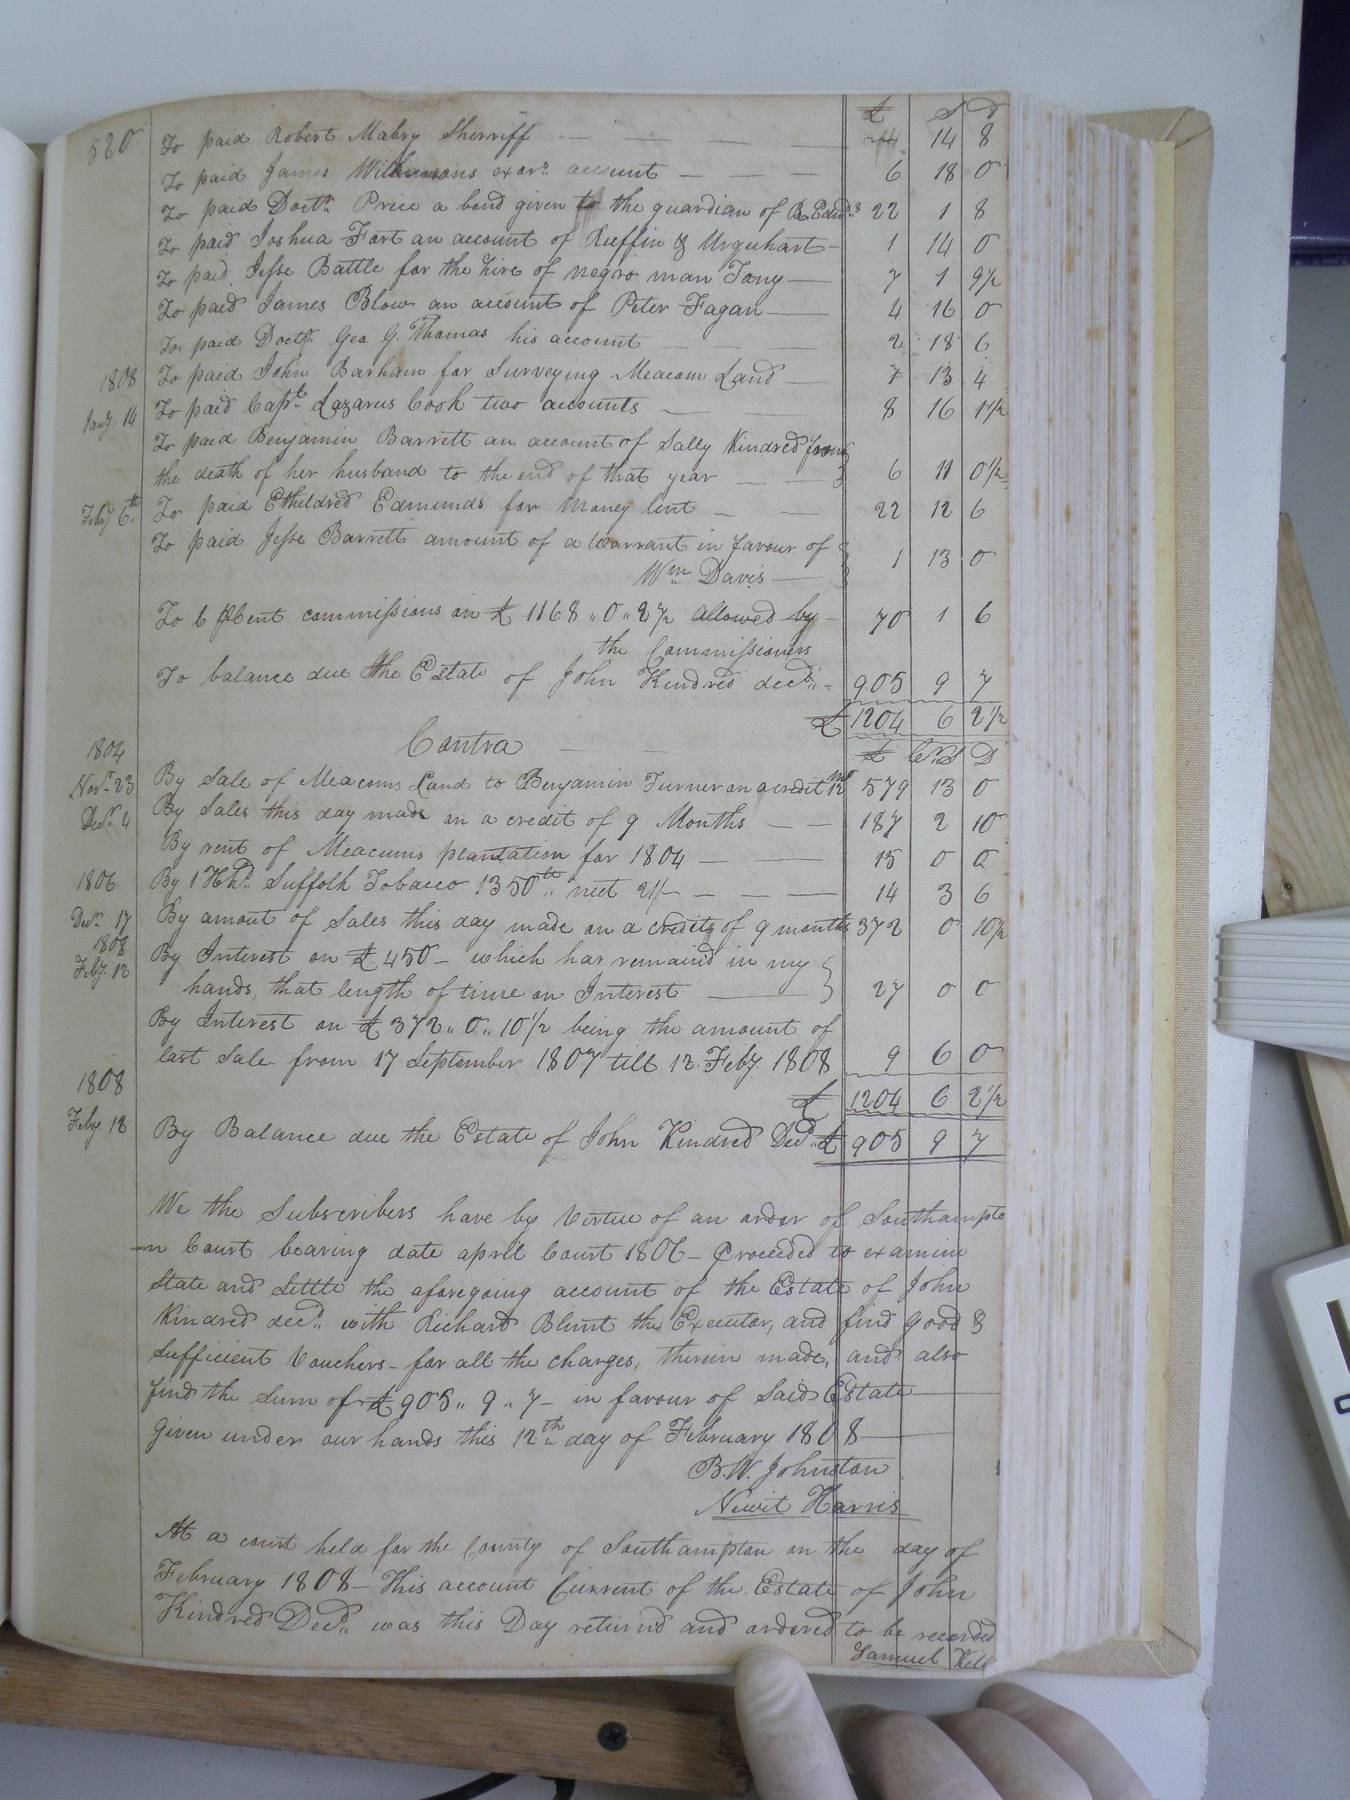 520
£ S D
To paid Robert Mabry Sherriff 14 8
To paid James exors. account 6 18 0
To paid Doctr. Price a bond given to the guardian of B Edmds 22 1 8
To paid Joshua Fort an account of Ruffin & Urquhart 1 14 0
To paid Jesse Battle for the hire of negro man Tony 7 1 9½
To paid James Blow an account of Peter Fagan 4 16 0
To paid Doctr. Geo G. Thomas his account 2 18 6
1808 To paid John Barham for Surveying Meacom Land 13 4
Jany 14 To paid Capt. Lazarus Cook two accounts 8 16 1½
To paid Benjamin Barrett an account of Sally Kindred from
the death of her husband to the end of that year 6 11 0½
Feby 6th To paid Etheldred Edmunds for Money lent 22 12 6
To paid Jesse Barrett amount of a Warrant in favour of
Wm Davis 1 13 0
To 6 pCent commissions on £ 1168 „ 0 „ 2½ allowed by 70 1 6
the Commissioners
To balance due the Estate of John Kindred decd. 905 9 7
£ 1204 6 2½
1804 Contra £ S D
Novr. 23 By Sale of Meacoms Land to Benjamin Turner on a credit 12 ms 579 13 0
Decr. 4 By Sales this day made on a credit of 9 Months 187 2 10
By rent of Meacums plantation for 1804 15 0 0
1806 By 1 Hhd. Suffolk Tobacco 1350 lb nett 21/- 14 3 6
Decr. 17 By amout of Sales this day made on a credit of 9 months 372 0 10½
1808
Feby. 12 By Interest on £ 450 - which has remaind in my
hands, that length of time on Interest 27 0 0
By Interest on £ 372 „ 0 „ 10½ being the amount of
last Sale from 17 September 1807 till 12 Feby. 1808 9 6 0
1808
£ 1204 6 2½
Feby 12 By Balance due the Estate of John Kindred Decd. £ 905 9 7
We the Subscribers have by Virtue of an order of Southampto
-n Court bearing date april Court 1806 - Proceeded to examine
State and Settle the aforegoing account of the Estate of John
Kindred decd. with Richard Blunt the Executor, and find good &
Sufficient Vouchers - for all the charges, therein made, and also
find the Sum of £ 905 „ 9 „ 7 - in favour of Said Estate
Given under our hands this 12th day of February 1808
B. W. Johnston
Newit Harris
At a court held for the County of Southampton on the day of
February 1808 - This account Current of the Estate of John
Kindred Decd. was this Day returnd and ordered to be recorded
Samuel Kell